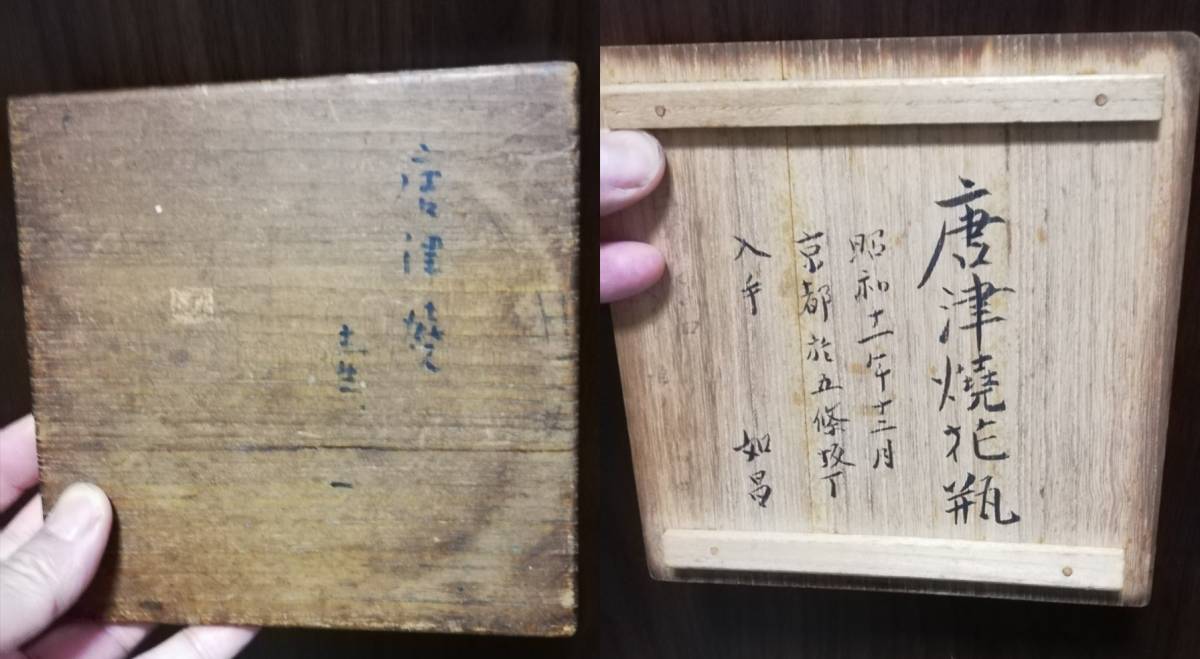 唐津
唐津燒花瓶
昭和十一年十二月
京都於五條坂下
入手　如昌